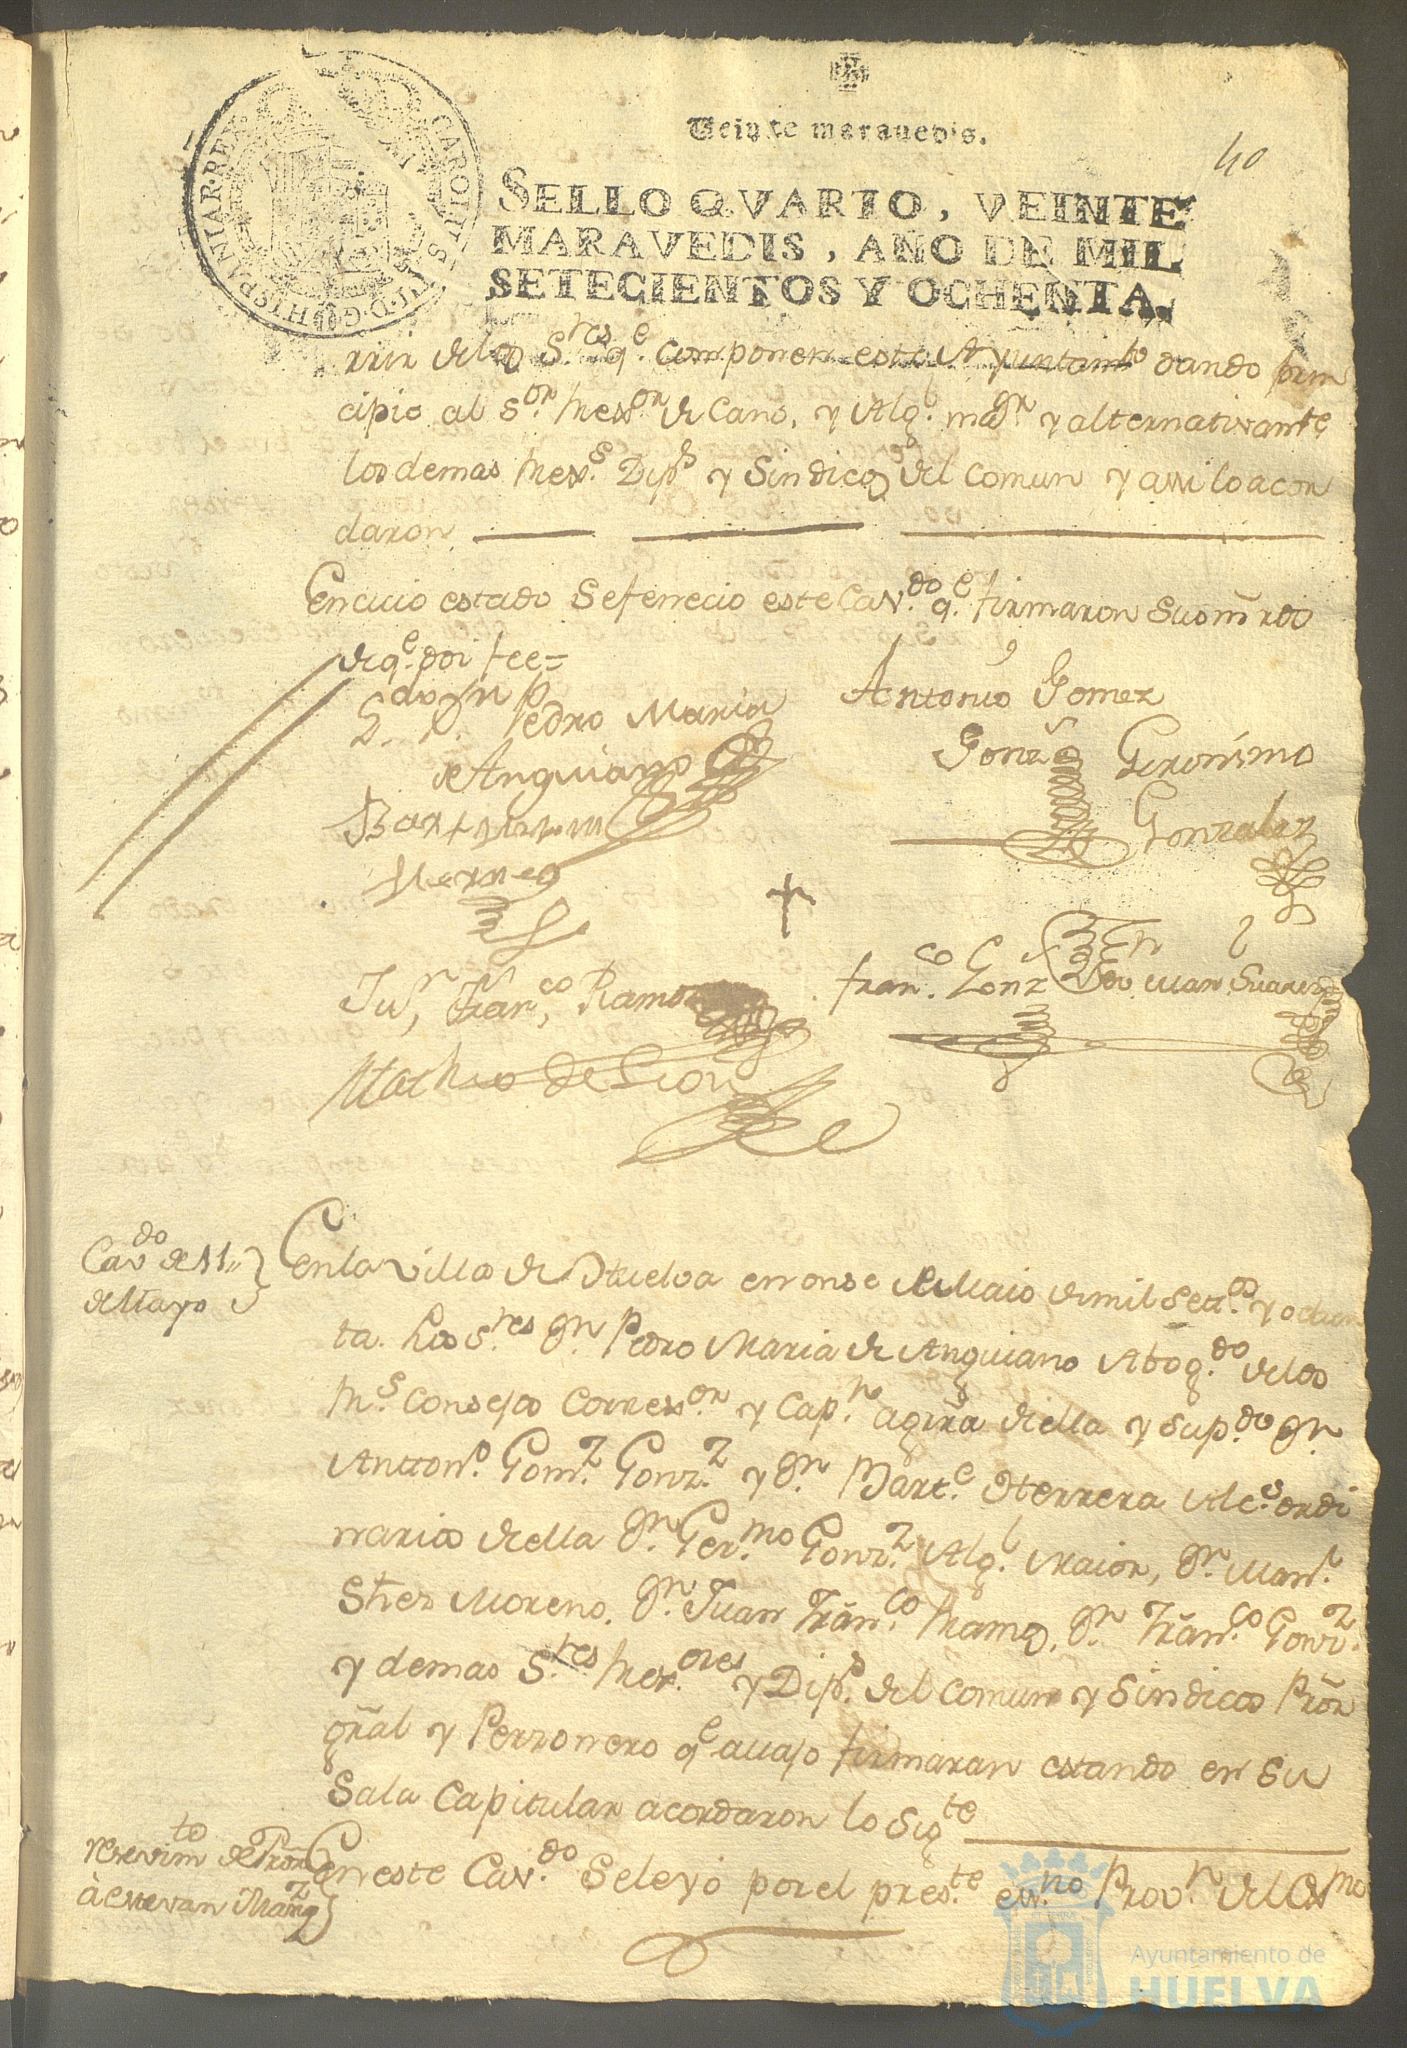 Veinte maravedis.
40
SELLO QVARTO, VEINTE
MARAVEDIS, AÑO DE MIL
SETECIENTOS Y OCHENTA.
CAROLUS III D.G. HISPANIAR. REX
rrir delos S.res q.e componen este Ayuntam.to dando prin
cipio al S.or Rex.or de Cano, y Alg.l ma.or y alternativam.te
los demas Rex.s Dip.s y Sindicos del Comun y assi lo acor
daron
En cuio estado se fenecio este Cav.do q.e firmaron sus mrds
de q.e doi fee=
Pedro Maria
de Anguiano
Antonio Gomez
Gonz.z
Geronimo
Gonzalez
Ju.n Fran.co Ramos
Fran.co Gonz
Juan Suarez
Matheo de Leon
Cav.do de 11
de Mayo
En la villa de Huelva en onse de Maio de mil Sett.os y ochen
ta. Los S.res Dn. Pedro Maria de Anguiano Abog.do de los
R.s Consejos Correx.or y Cap.n aguerra de ella y su p.do Dn.
Anton.o Gom.z Gonz.z y Dn. Bart.e Herrera Alc.s ordi
narios de ella Dn. Ger.mo Gonz.z Alg.l Maior, Dn. Man.l
Shez Moreno, Dn. Juan Fran.co Ramos, Dn. Fran.co Gonz.z
y demas S.res Rex.ores y Dip.s del Comun y Sindicos Pror
gral y Perzonero q.e avajo firmaran estando en su
Sala Capitular acordaron lo sig.te
resevim.to de Pron
à Estevan Marq.z
En este Cav.do se leyo por el pres.te ess.no Prov.n del Ex.mo
Ayuntamiento de
HUELVA